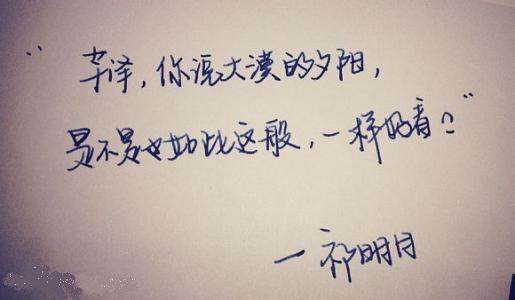 “芊泽,你说大漠的夕阳,
是不是也如此这般,一样好看?”
—祁明月